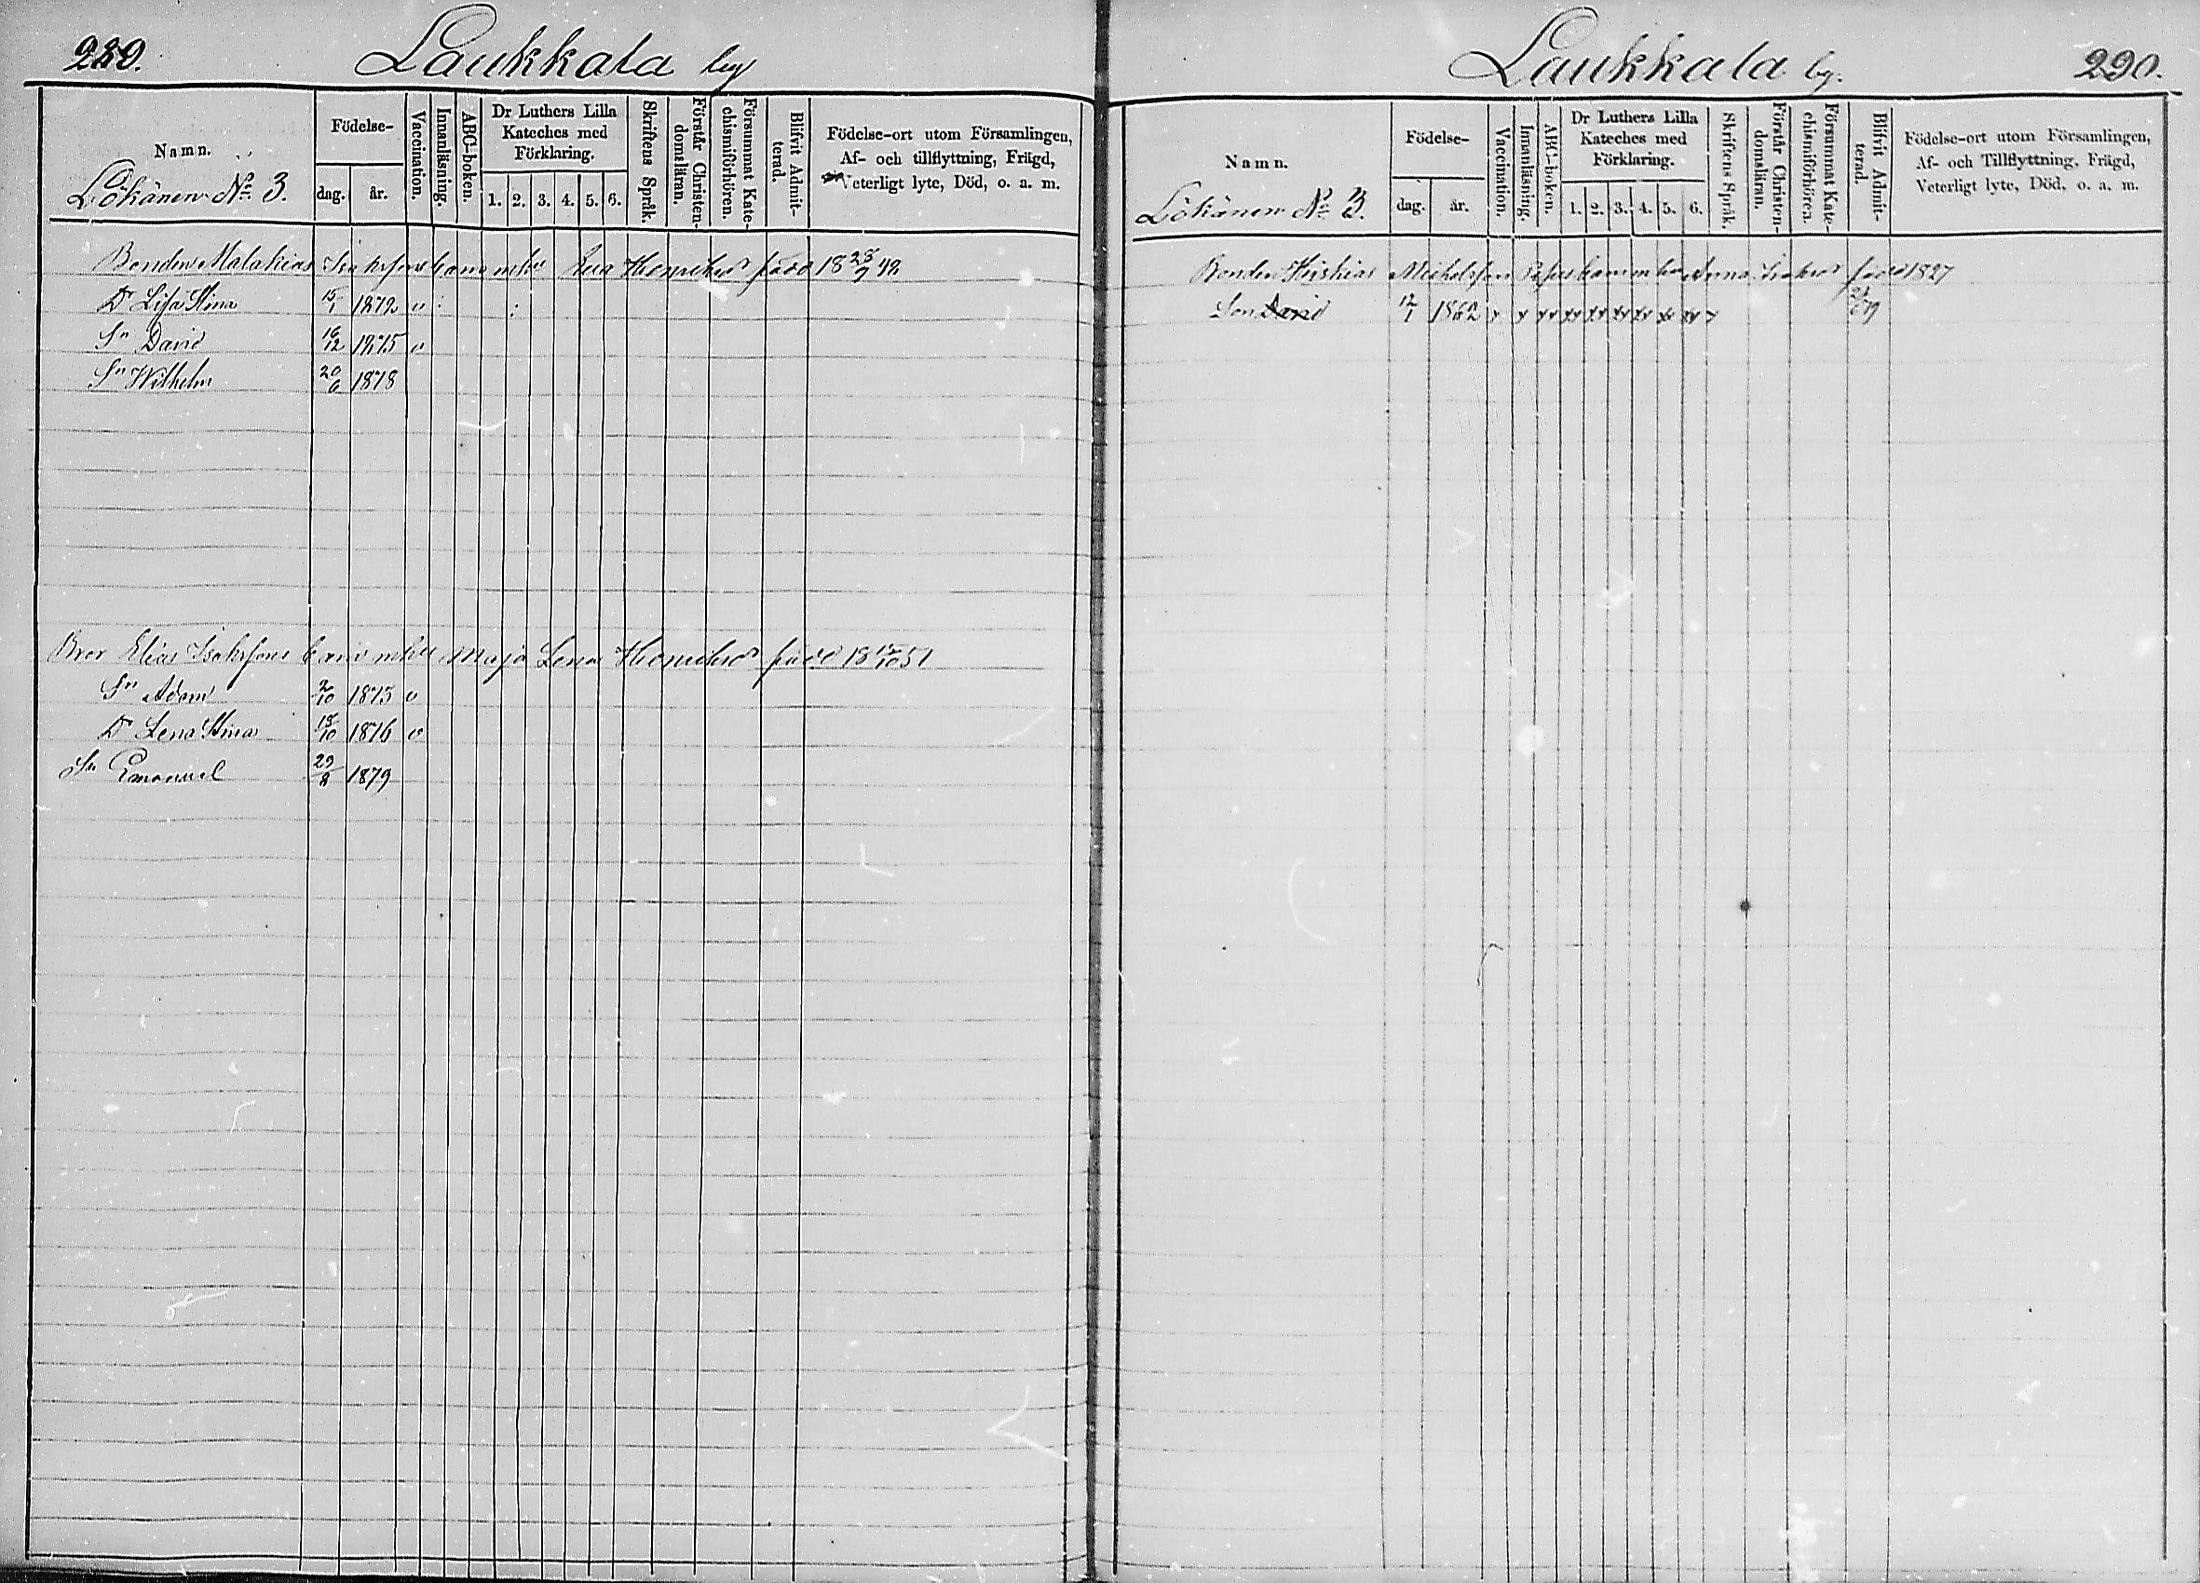 289.
Laukkala by
Namn.
Lökänen No 3.
Födelse-
dag.
år.
Vaccination.
Innanläsning.
ABC-boken.
Dr Luthers Lilla
Kateches med
Förklaring.
1. 2. 3. 4. 5. 6.
Skriftens Språk.
Förstår Christen-
domsläran.
Försummat Kate-
chismiförhören.
Blifvit Admit-
terad.
Födelse-ort utom Församlingen,
Af- och tillflyttning, Frägd,
Veterligt lyte, Död, o. a. m.
Bonden Malakias Isakssons barn m hu Lena Henriksdr född 18 23/9 42
Dr Lisa Stina 15/1 1872 v
Sn David 16/12 1875 v
Sn Wilhelm 20/6 1878
Bror Elias Isakssons barn m hu Maja Lena Henriksdr född 18 /10 51
Sn Adam 2/10 1875 v
Dr Lena Stina 18/10 1876 v
Sn Emanuel 29/8 1879
Laukkala by.
290.
Namn.
Lökänen No 3.
Födelse-
dag.
år.
Vaccination.
Innanläsning.
ABC-boken.
Dr Luthers Lilla
Kateches med
Förklaring.
1. 2. 3. 4. 5. 6.
Skriftens Språk.
Förstår Christen-
domsläran.
Försummat Kate-
chismiförhören.
Blifvit Admit-
terad.
Födelse-ort utom Församlingen,
Af- och Tillflyttning, Frägd,
Veterligt lyte, Död, o. a. m.
Bonden Hiskias barn m hu Anna Isaksdr född 1827
Son David 12/1 1862